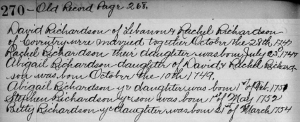 270 Old Record Page 268.
David Richardson of Lebanon & Rachel Richardson
of Coventry were Joyned together October the 28th 1747
Rachel Richardson their daughter was born July 23d 1747
Abigail Richardson daughter of David & Rachel Richard
son was born October the 10th 1749.
Abigail Richardson ye daughter was born 1st of Feb. 1751
Stephen Richardson ye son was born 1st of May 1752
Betty Richardson ye daughter was born 21st of March 1754